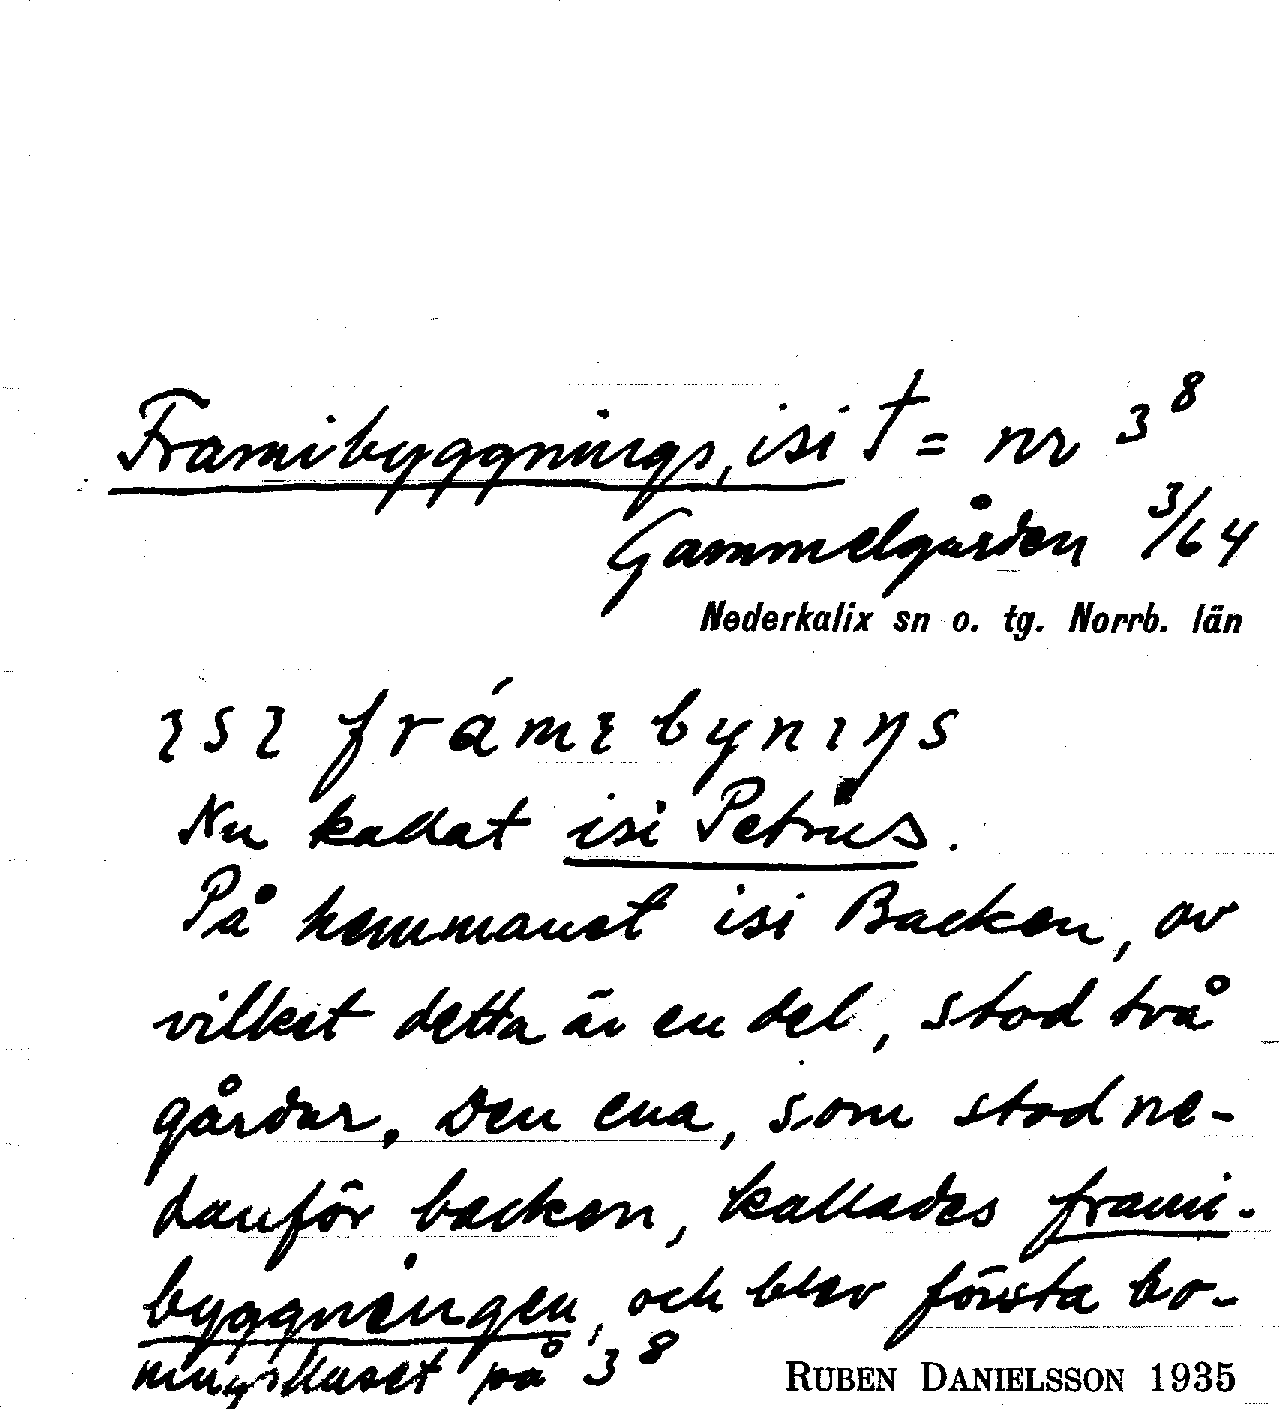 Framibyggnings, isi † = nr 3⁸
Gammelgården 3/64
Nederkalix sn o. tg. Norrb. län
ɩsɩ frámɩbynɩŋs
Nu kallat isi Petrus.
På hemmanet isi Backen, av
vilket detta är en del, stod två
gårdar. Den ena, som stod ne-
danför backen, kallades frami-
byggningen, och blev första bo-
ningshuset på 3⁸
RUBEN DANIELSSON 1935